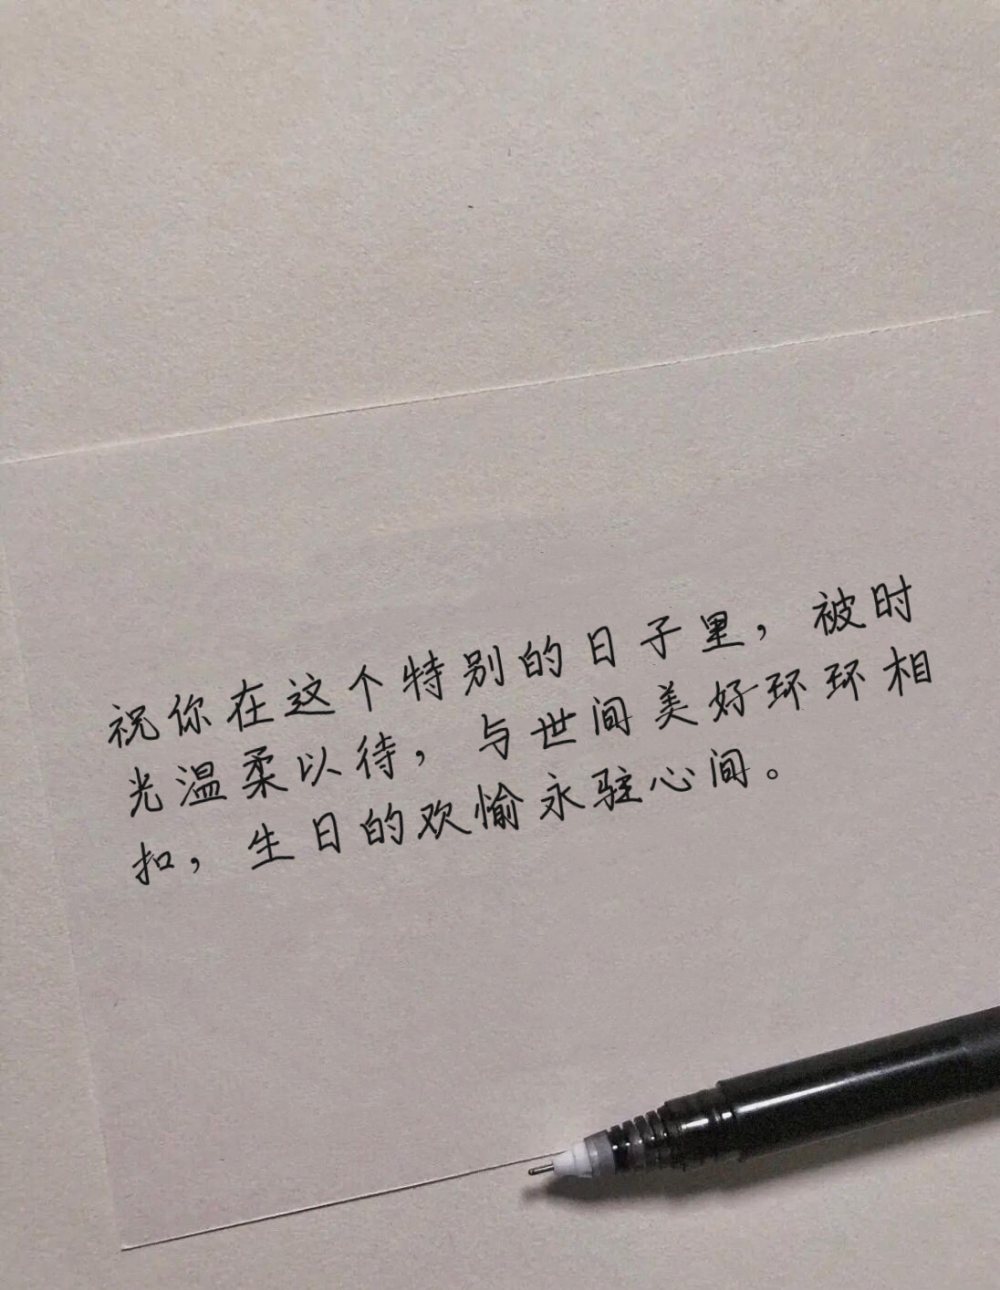 祝你在这个特别的日子里，被时
光温柔以待，与世间美好环环相
扣，生日的欢愉永驻心间。